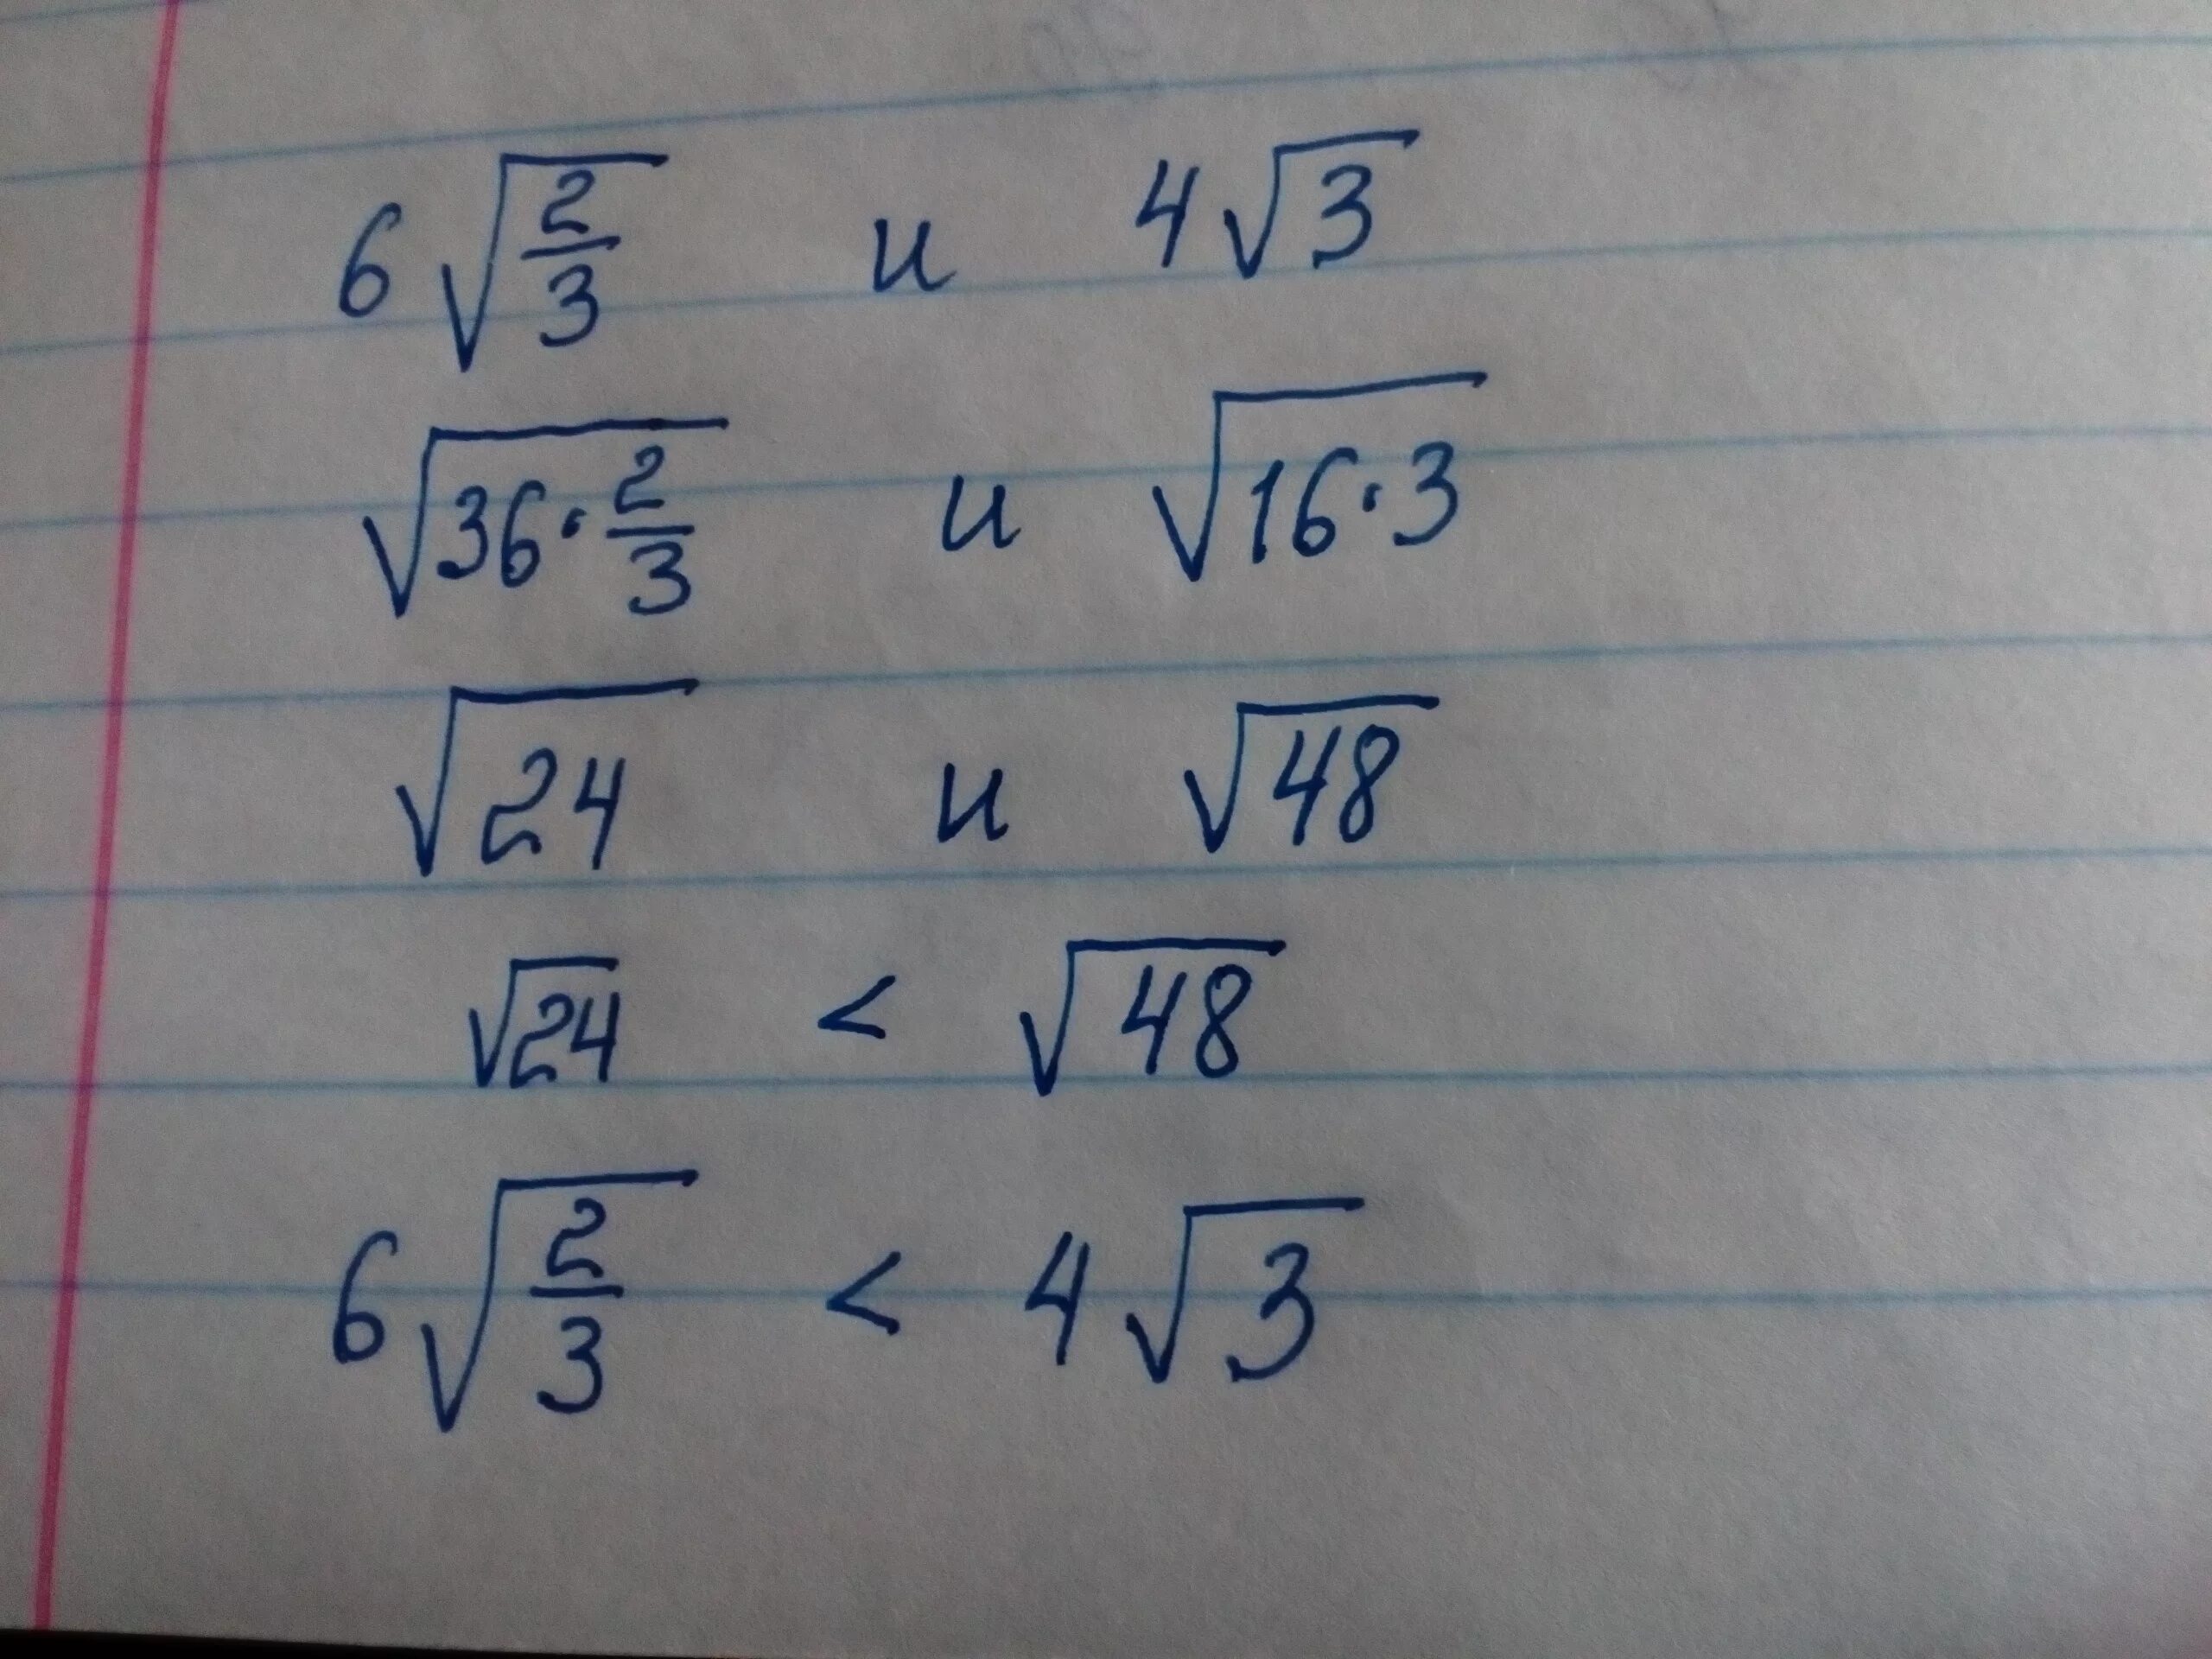 6√(2/3) и 4√3
√(36·2/3) и √(16·3)
√24 и √48
√24 < √48
6√(2/3) < 4√3